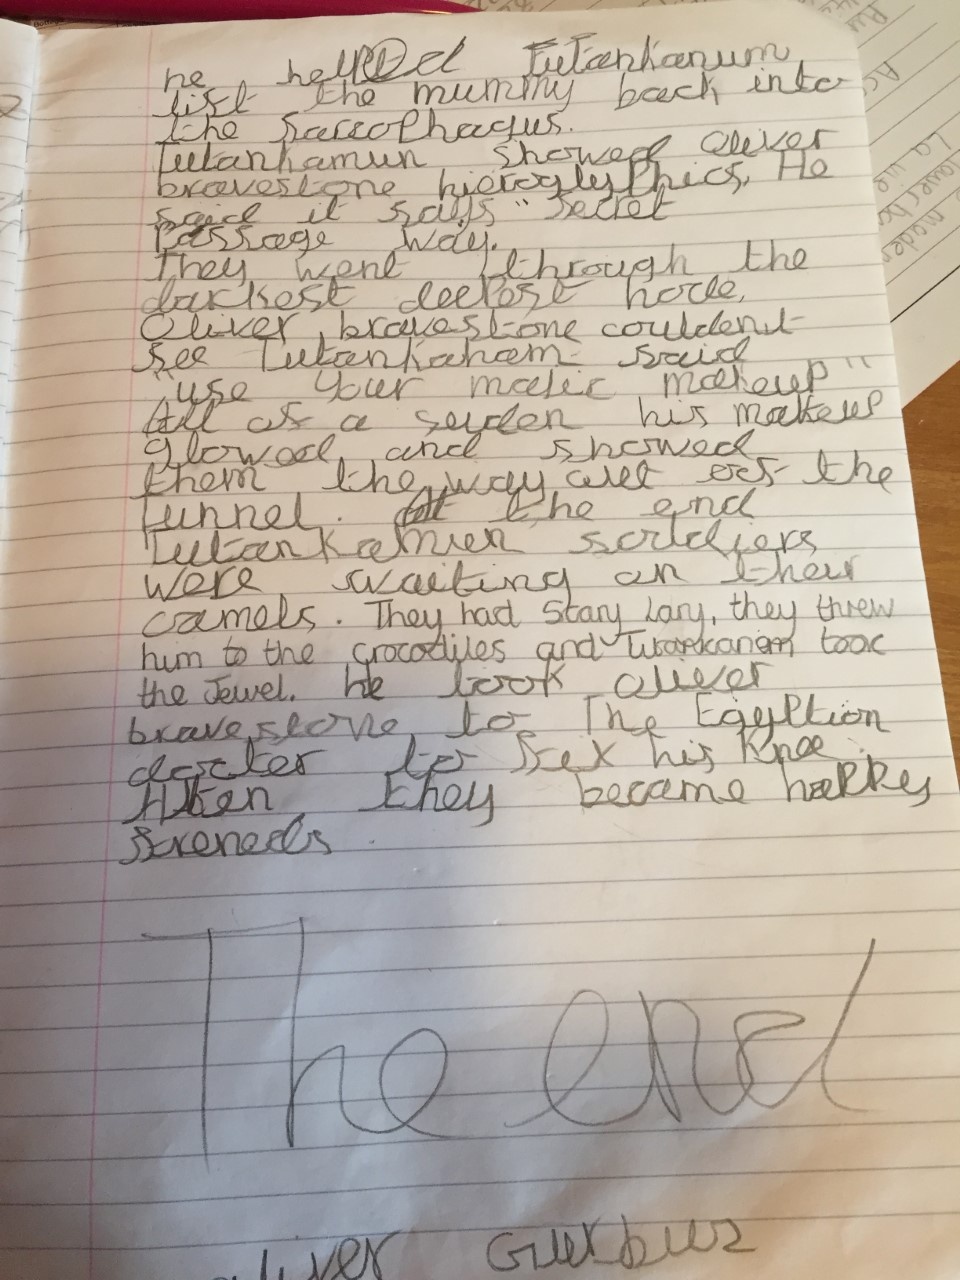 he helped Tutankanum
lift the mummy back into
the Sarcophagus.
Tutanhamun showed Oliver
bravestone hieroglyphics. He
said it says "secret
Passage way.
They went through the
darkest deepest hole.
Oliver bravestone couldent
see Tutankaham said
"use your majic makeup"
All of a suden his makeup
glowed and showed
them the way out of the
tunnel. At the end
Tutankamun souldiers
were waiting on their
camels. They had Scary Lary, they threw
him to the crocodiles and Tutankanam took
the Jewel. he took oliver
bravestone to The Egyption
docter to fix his Knee.
Then they became happy
frieneds.
The end
Oliver Gurbuz